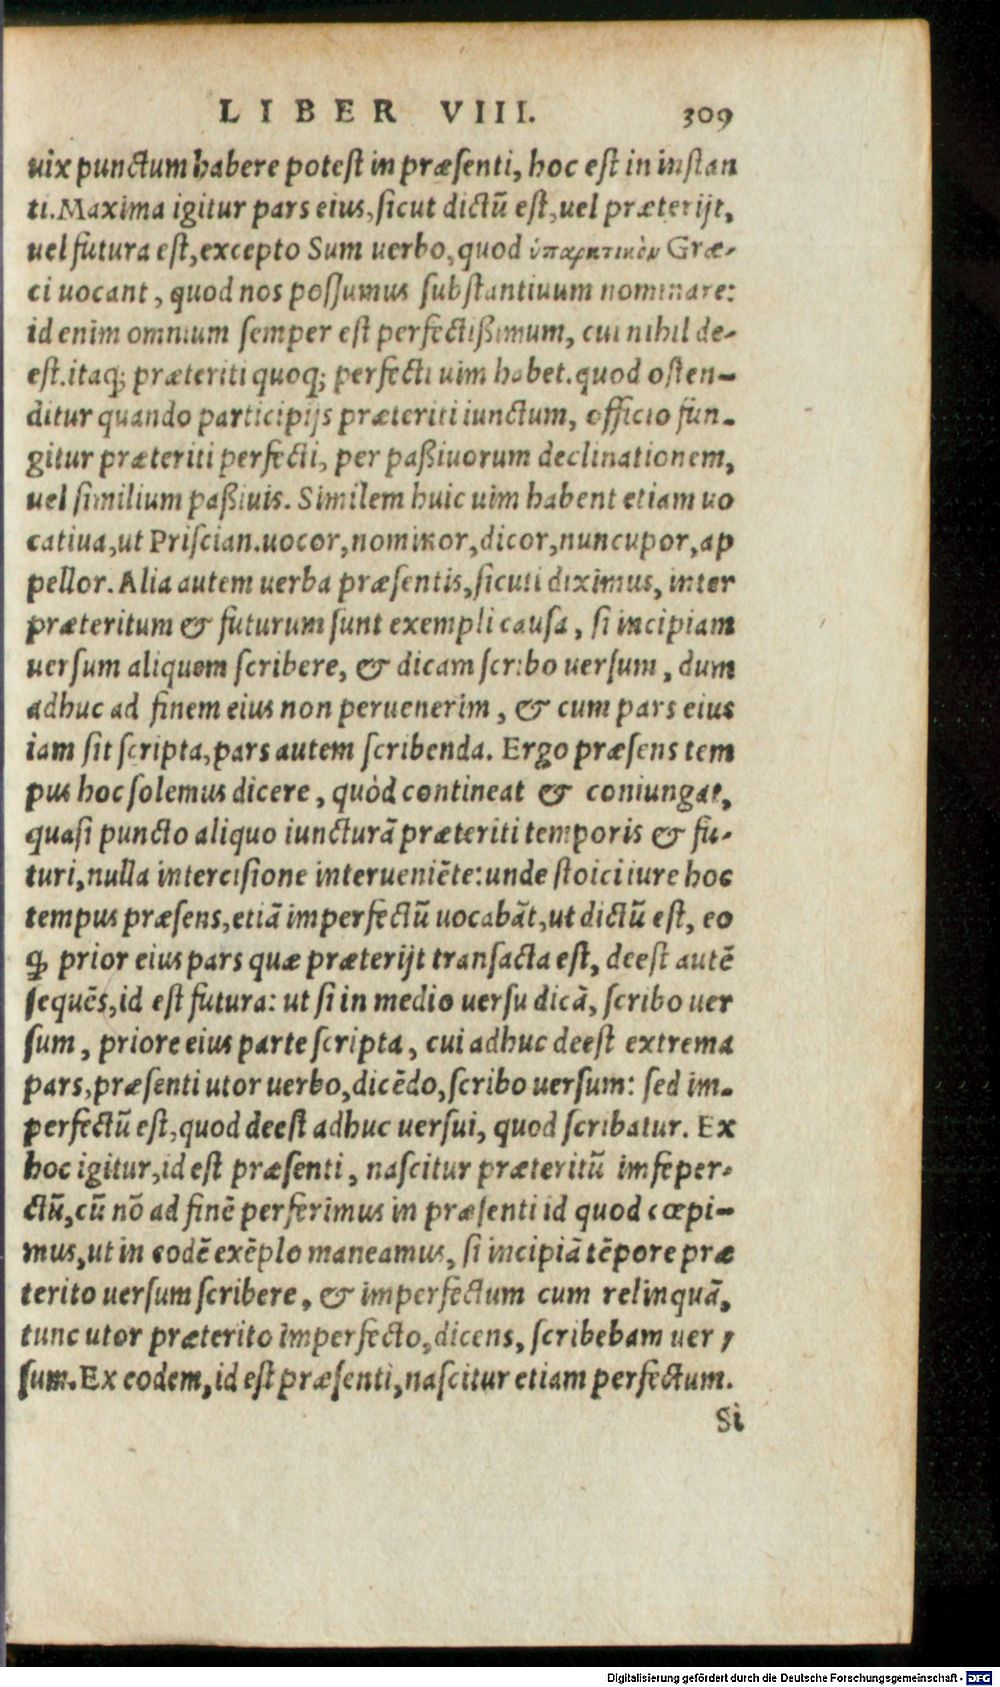 LIBER VIII. 309
uix punctum habere potest in præsenti, hoc est in instan
ti. Maxima igitur pars eius, sicut dictũ est, uel præterijt,
uel futura est, excepto Sum uerbo, quod ὑπαρκτικὸν Græ-
ci uocant, quod nos possumus substantiuum nominare:
id enim omnium semper est perfectißimum, cui nihil de-
est. itaq; præteriti quoq; perfecti uim habet. quod osten-
ditur quando participijs præteriti iunctum, officio fun-
gitur præteriti perfecti, per paßiuorum declinationem,
uel similium paßiuis. Similem huic uim habent etiam uo
catiua, ut Priscian. uocor, nominor, dicor, nuncupor, ap
pellor. Alia autem uerba præsentis, sicuti diximus, inter
præteritum & futurum sunt exempli causa, si incipiam
uersum aliquem scribere, & dicam scribo uersum, dum
adhuc ad finem eius non peruenerim, & cum pars eius
iam sit scripta, pars autem scribenda. Ergo præsens tem
pus hoc solemus dicere, quòd contineat & coniungat,
quasi puncto aliquo iuncturã præteriti temporis & fu-
turi, nulla intercisione interueniẽte: unde stoici iure hoc
tempus præsens, etiã imperfectũ uocabãt, ut dictũ est, eo
ꝙ prior eius pars quæ præterijt transacta est, deest autẽ
sequẽs, id est futura: ut si in medio uersu dicã, scribo uer
sum, priore eius parte scripta, cui adhuc deest extrema
pars, præsenti utor uerbo, dicẽdo, scribo uersum: sed im-
perfectũ est, quod deest adhuc uersui, quod scribatur. Ex
hoc igitur, id est præsenti, nascitur præteritũ imfeper-
ctũ, cũ nõ ad finẽ perferimus in præsenti id quod cœpi-
mus, ut in eodẽ exẽplo maneamus, si incipiã tẽpore præ
terito uersum scribere, & imperfectum cum relinquã,
tunc utor præterito imperfecto, dicens, scribebam uer-
sum. Ex eodem, id est præsenti, nascitur etiam perfectum.
Si
Digitalisierung gefördert durch die Deutsche Forschungsgemeinschaft - DFG